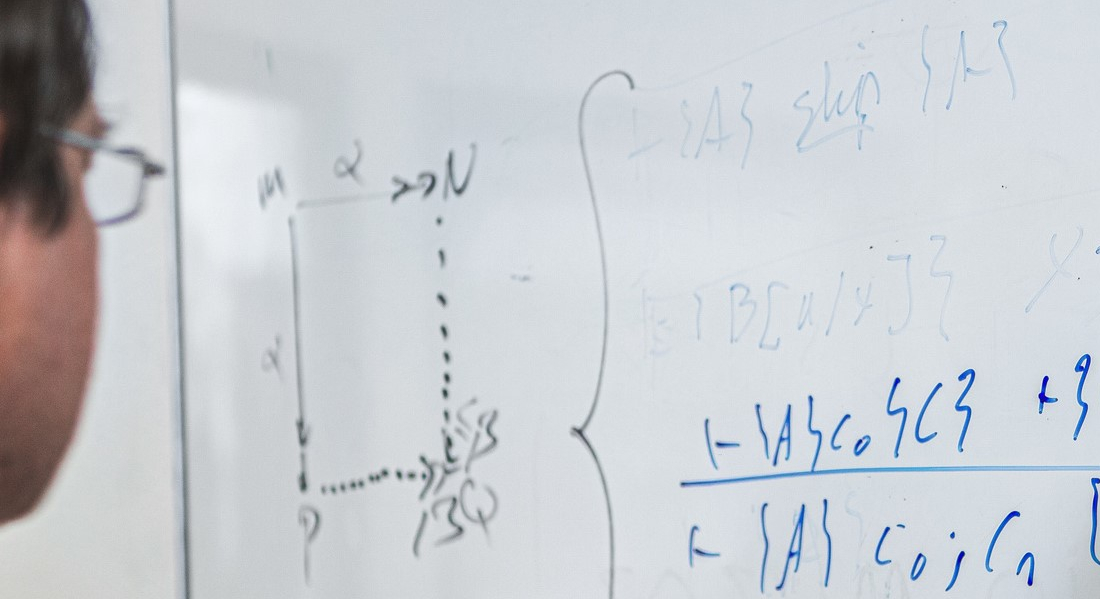 M α N
α
β
P β Q
⊢ {A} skip {A}
{B[u/x]}
⊢ {A} c₀ {C} ⊢ {
⊢ {A} c₀ ; c₁ {